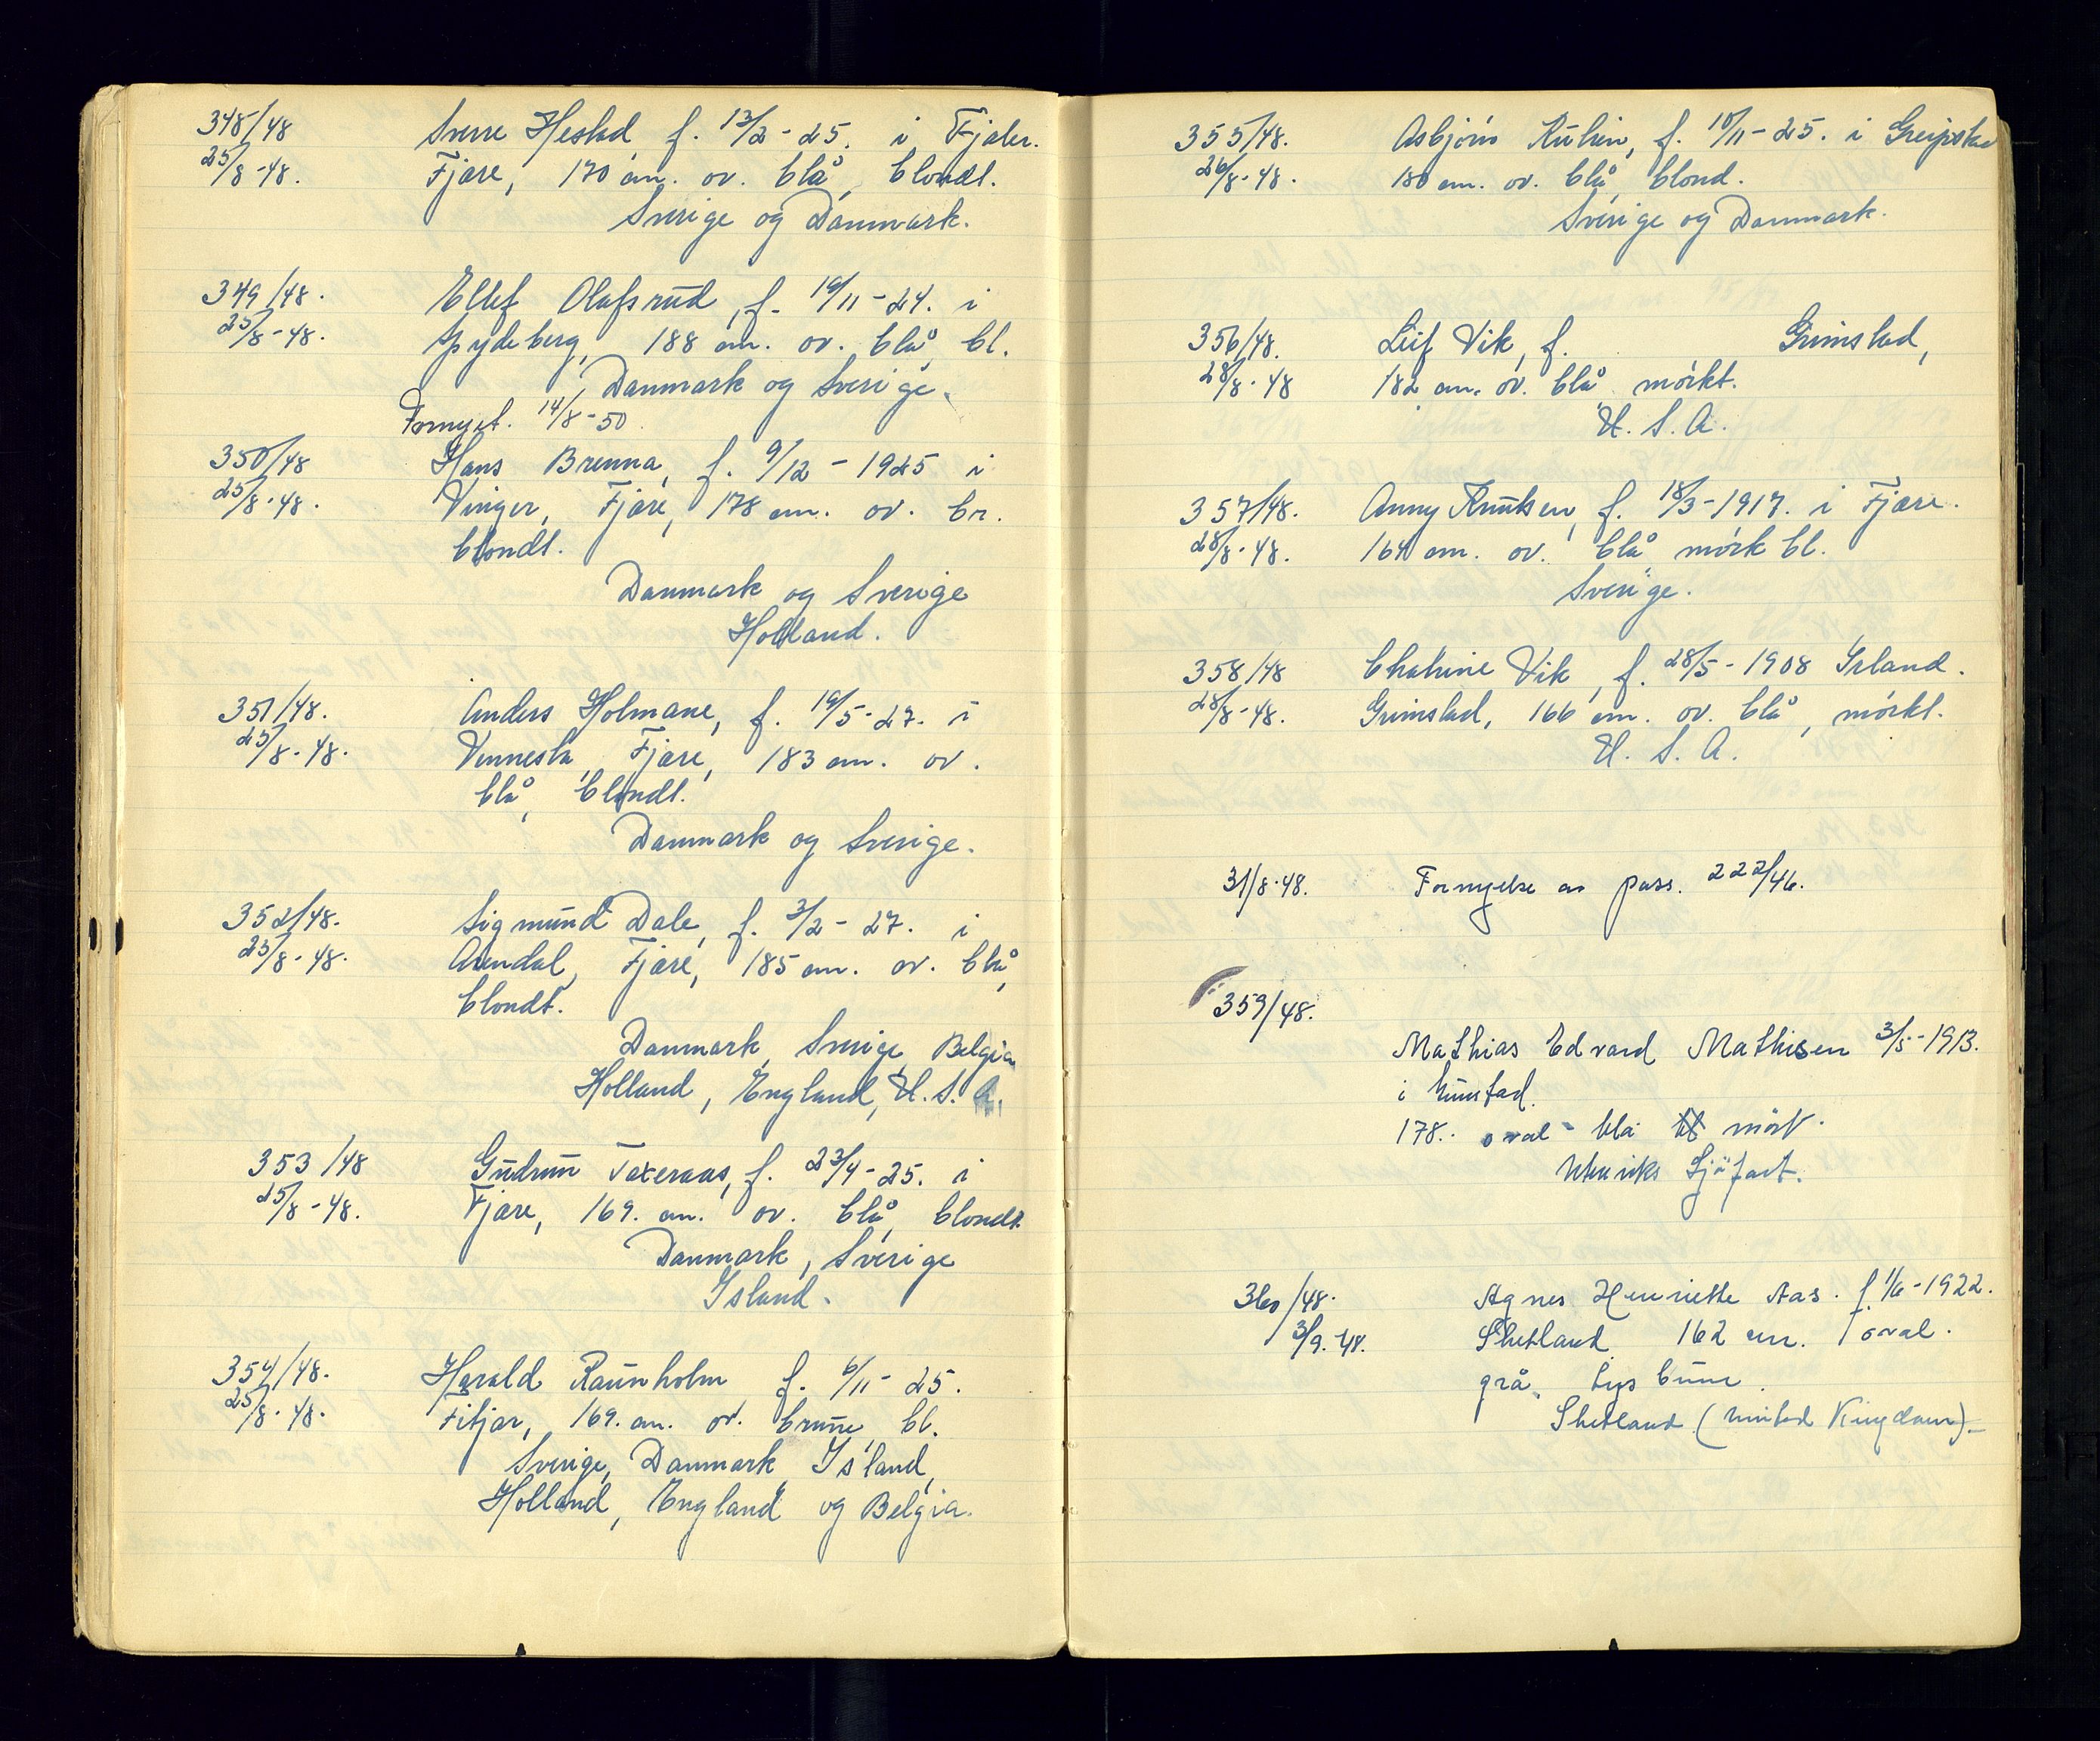 348/48
25/8-48.
Sverre Hestad, f. 13/2-25. i Fjaler.
Fjære, 170 cm. ov. blå, blondt.
Sverige og Danmark.
349/48.
25/8-48.
Ellef Olafsrud, f. 19/11-24. i
Spydeberg, 188 cm. ov. blå, bl.
Danmark og Sverige.
Fornyet. 14/8-50.
350/48
25/8-48.
Hans Brenna, f. 9/12-1925 i
Vinger, Fjære, 178 cm. ov. br.
blondt.
Danmark og Sverige
Holland.
351/48.
25/8-48.
Anders Holmane, f. 19/5-27. i
Vennesla, Fjære, 183 cm. ov.
blå, blondt.
Danmark og Sverige.
352/48.
25/8-48.
Sigmund Dale, f. 3/2-27. i
Arendal, Fjære, 185 cm. ov. blå,
blondt.
Danmark, Sverige, Belgia
Holland, England, U.S.A.
353/48
25/8-48.
Gudrun Taxeraas, f. 23/4-25. i
Fjære, 169. cm. ov. blå, blondt.
Danmark, Sverige
Island.
354/48.
25/8-48.
Harald Raunholm f. 6/11-25.
Fitjar, 169. cm. ov. brune, bl.
Sverige, Danmark, Island,
Holland, England og Belgia.
355/48.
26/8-48.
Asbjørn f. 10/11-25. i Greipstad
180 cm. ov. blå, blond.
Sverige og Danmark.
356/48.
28/8-48
Leif Vik, f. Grimstad,
182 cm. ov. blå, mørkt.
U.S.A.
357/48.
28/8-48.
Anny Knutsen, f. 18/3-1917. i Fjære.
164 cm. ov. blå, mørk bl.
Sverige.
358/48
28/8-48.
Chatrine Vik, f. 28/5-1908 Irland.
Grimstad, 166 cm. ov. blå, mørkt.
U.S.A.
31/8-48.
Fornyelse av pass. 222/46.
359/48.
Mathias Edvard Mathisen 3/5-1913.
i Grimstad.
178. oval blå mørk.
Utenriks Sjøfart.
360/48.
3/9.48.
Agnes Henriette Aas. f. 1/6-1922.
Shetland 162 cm. oval.
grå, lys brune.
Shetland (United Kingdom).